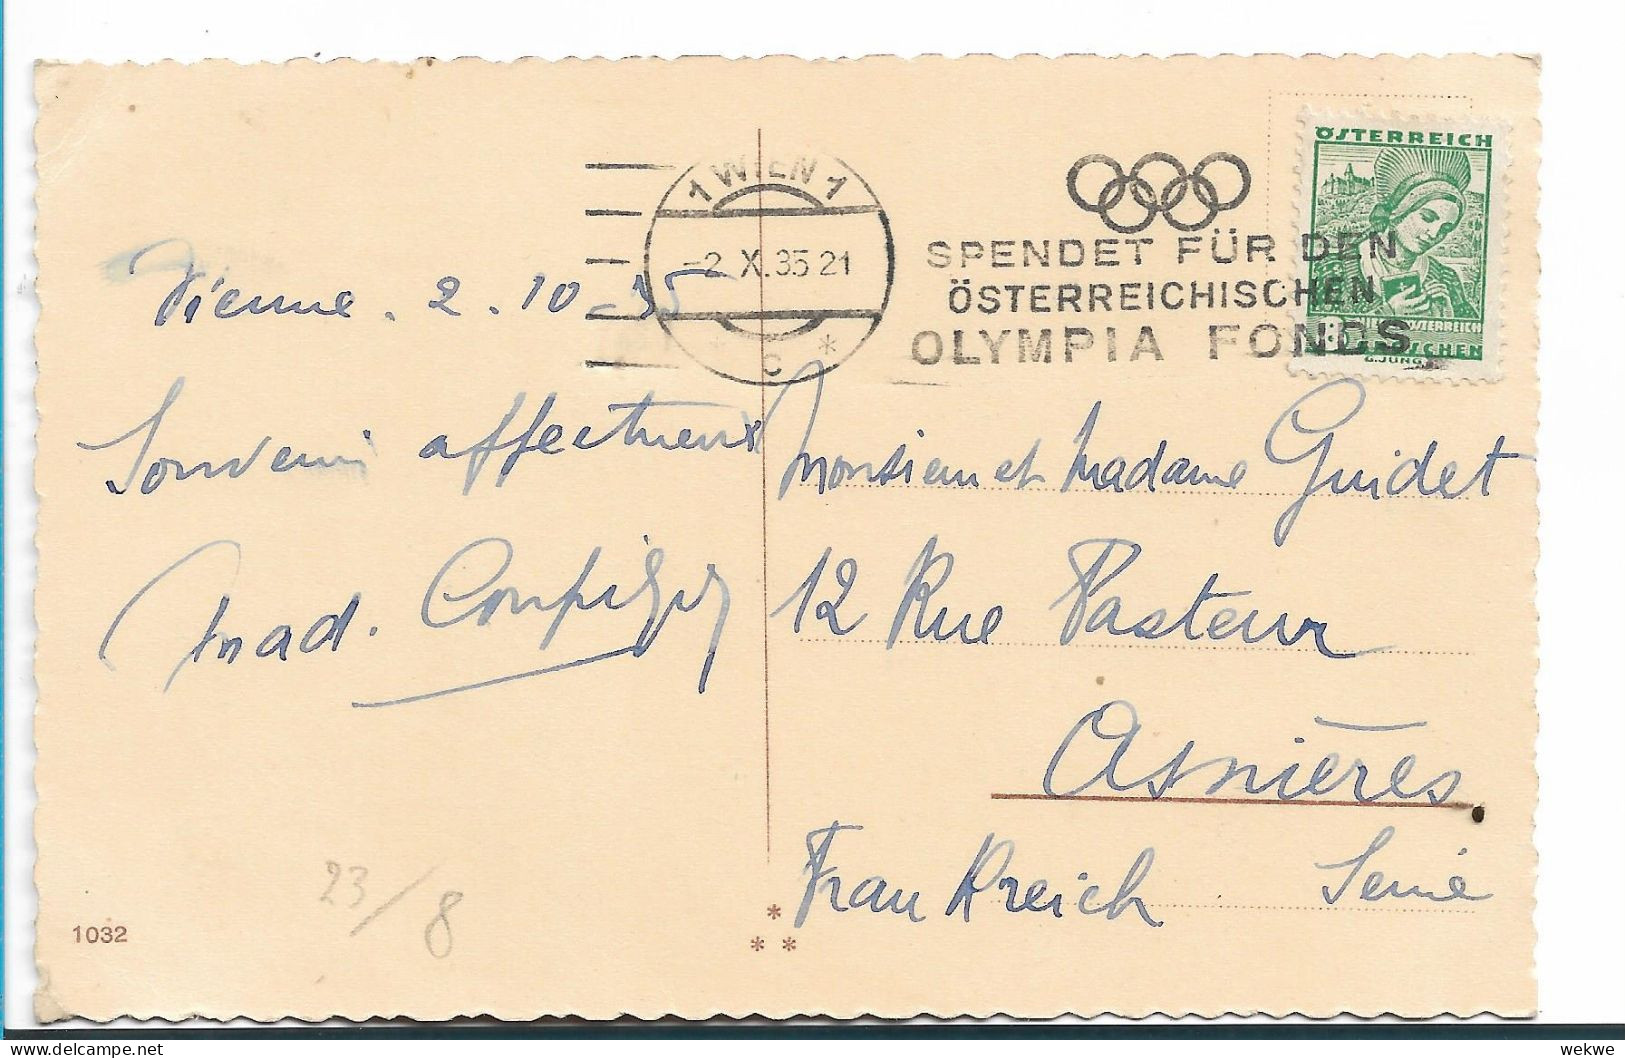 ÖSTERREICH
1 WIEN 1
-2. X. 35 21
C
SPENDET FÜR DEN
ÖSTERREICHISCHEN
OLYMPIA FONDS
8
Vienne. 2. 10 - 35
Souvenir affectueux
Mad.
Monsieur et Madame Guidet
12 Rue Pasteur
Asnières
Frankreich Seine
23/8
1032
wekwe